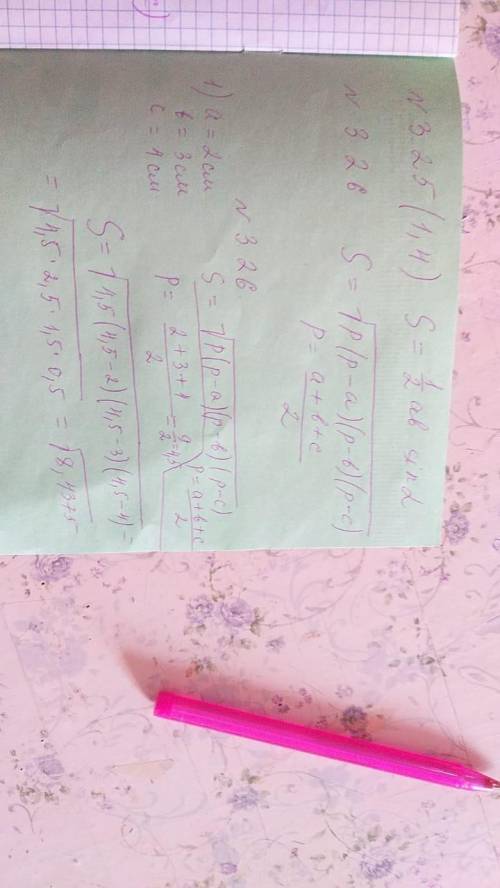 N 325 (1,4) S = 1/2 ab sin α
N 326 S = √p(p-a)(p-b)(p-c)
p = a+b+c/2
N 326
1) a = 2 см
b = 3 см
c = 4 см
S = √p(p-a)(p-b)(p-c)
p = 2+3+4/2 = 9/2 = 4,5
p = a+b+c/2
S = √4,5(4,5-2)(4,5-3)(4,5-4) =
= √4,5·2,5·1,5·0,5 = √8,4375